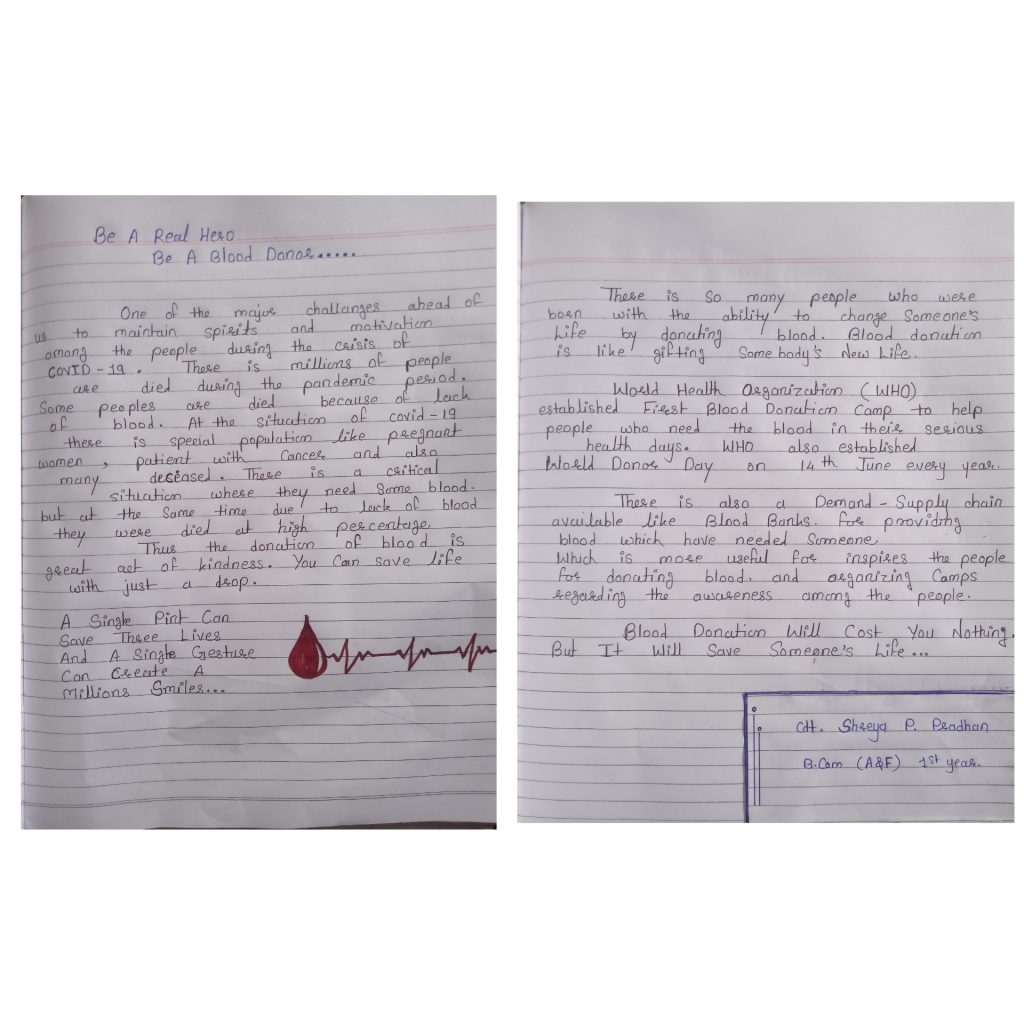 Be A Real Hero
Be A Blood Donor.....
One of the major challanges ahead of
us to maintain spirits and motivation
among the people during the crisis of
COVID-19. There is millions of people
are died during the pandemic period.
Some peoples are died because of lack
of blood. At the situation of covid-19
there is special population like pregnant
women, patient with Cancer and also
many deceased. There is a critical
situation where they need some blood.
but at the same time due to lack of blood
they were died at high percentage.
Thus the donation of blood is
great act of kindness. You Can save life
with just a drop.
A Single Pint Can
Save Three Lives
And A Single Gesture
Can Create A
Millions Smiles...
There is so many people who were
born with the ability to change Someone's
Life by donating blood. Blood donation
is like gifting Some body's New Life..
World Health Organization (WHO)
established First Blood Donation Camp to help
people who need the blood in their serious
health days. WHO also established
World Donor Day on 14th June every year.
There is also a Demand-Supply chain
available like Blood Banks. For providing
blood which have needed Someone.
Which is more useful for inspires the people
for donating blood. and organizing Camps
regarding the awareness among the people.
Blood Donation Will Cost You Nothing.
But It Will Save Someone's Life...
Cdt. Shreya P. Pradhan
B.Com (A&F) 1st year.